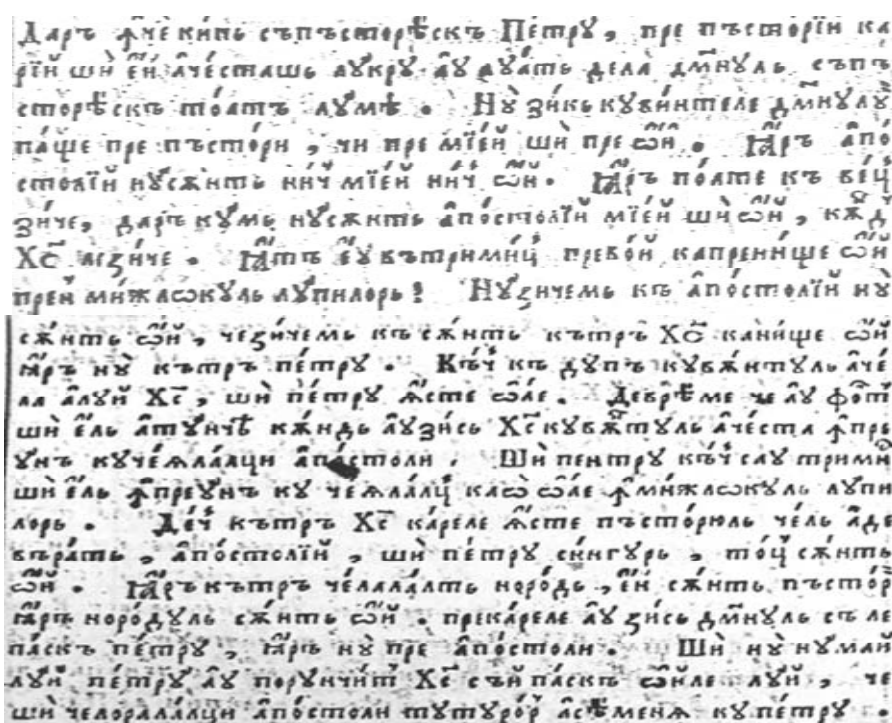 Даръ ꙟ҆че ки́пь съпъсторѣ́скъ Пе́трꙋ, пре пъсторїи ка
рїй шѝ е҆́й а҆че́сташь лꙋкрꙋ а҆ꙋ лꙋа́ть дела дм҃нꙋль съпъ
сторѣ́скъ то́атъ лꙋмѣ. Нꙋ̀ зи́кь кꙋви́нтеле дм҃нꙋлꙋ́й
па́ще пре пъсто́ри, чи пре мїе́й шѝ пре ѡ҆́й. Ꙗ҆́ръ а҆по́
столїй нꙋсжнть ни́ч мїе́й ни́ч ѡ҆́й. Ꙗ҆́ръ по́ате къ ве́ц
зи́че, даръ кꙋмь нꙋсжнть а҆по́столїй мїе́й шѝ ѡ҆́й, кж҆́д
Хс҃ ле зи́че. Ꙗ҆́тъ е҆́ꙋ въ трими́ц превѡ́й ка пре ни́ще ѡ҆́й
прен ми́жлѡкꙋль лꙋпилорь! Нꙋ зи́чемь къ а҆по́столїй нꙋ̀
сжнть ѡ҆́й, че зи́чемь къ сжнть кътръ Хс҃ ка ни́ще ѡ҆́й
ꙗ҆́ръ нꙋ̀ кътръ пе́трꙋ. Къ́ч къ дꙋпъ кꙋвжнтꙋль а҆че́
ла а҆лꙋ́й Хс҃, шѝ пе́трꙋ ꙗ҆́сте ѡ҆́ае. Де врѣ́ме че а҆ꙋ фо́ст
шѝ е҆́ль а҆тꙋнчѣ кжндь а҆ꙋ зи́сь Хс҃ кꙋвжнтꙋль а҆че́ста ꙟ҆пре
ꙋнъ кꙋ че́ѧлалци а҆по́столи. Шѝ пентрꙋ къ́ч саꙋ трими́с
шѝ е҆́ль ꙟ҆преꙋнъ кꙋ че́ѧлалц ка ѡ҆̀ ѡ҆́ае ꙟ҆ ми́жлѡкꙋль лꙋпи
лорь. Де́ч кътръ Хс҃ ка́реле ꙗ҆́сте пъсто́рюль че́ль а҆де
въра́ть, а҆по́столїй, шѝ пе́трꙋ си́нгꙋрь, то́ц сжнть
ѡ҆́й. Ꙗ҆́ръ кътръ че́лалалть норо́дь, е҆́й сжнть пъсто́р
ꙗ҆́ръ норо́дꙋль сжнть ѡ҆́й. прека́реле а҆ꙋ зи́сь дм҃нꙋль съ ле
па́скъ пе́трꙋ, ꙗ҆́ръ нꙋ̀ пре а҆по́столи. Шѝ нꙋ̀ нꙋмай
лꙋ́й пе́трꙋ а҆ꙋ порꙋнчи́т Хс҃ съ́й па́скъ ѡ҆́йле лꙋ́й, че
шѝ челоралалци а҆по́столи тꙋтꙋро́р а҆сѣ́менѧ кꙋ пе́трꙋ.